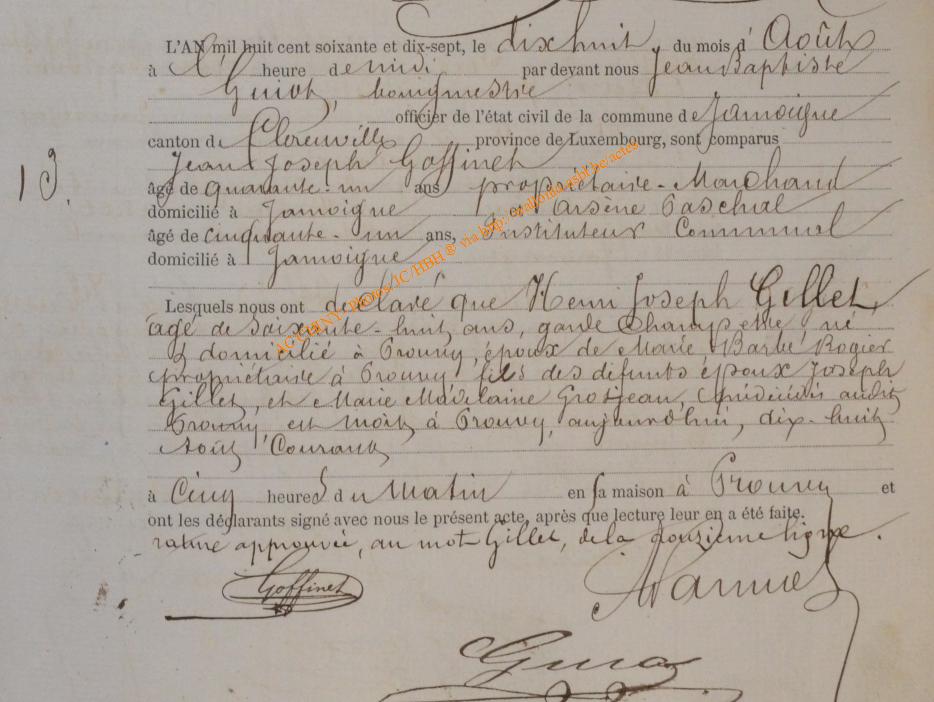 L'AN mil huit cent soixante et dix-sept, le dix huit, du mois d'Août
à l' heure de midi par devant nous Jean Baptiste
Guiot, bourgmestre
officier de l'état civil de la commune de Jamoigne
canton de province de Luxembourg, sont comparus
Jean Joseph Goffinet
13.
âgé de quarante-un ans propriétaire-Marchand
domicilié à Jamoigne Arsène Paschal
âgé de cinquante-un ans, Instituteur Communal
domicilié à Jamoigne
Lesquels nous ont déclaré que Henri Joseph Gillet,
agé de soixante-huit ans, garde champetre né
& domicilié à Prouvy, époux de Marie Barbe Rogier
propriétaire à Prouvy fils des défunts époux Joseph
Gillet, et Marie Madelaine Grosjean, audit
Prouvy est mort à Prouvy, aujourd'hui, dix-huit
Août Courant
à Cinq heures du Matin en sa maison à Prouvy et
ont les déclarants signé avec nous le présent acte, après que lecture leur en a été faite.
rature approuvée, au mot Gillet, de la ligne.
Goffinet
ACCHINY photos JC/HBH @ via http://